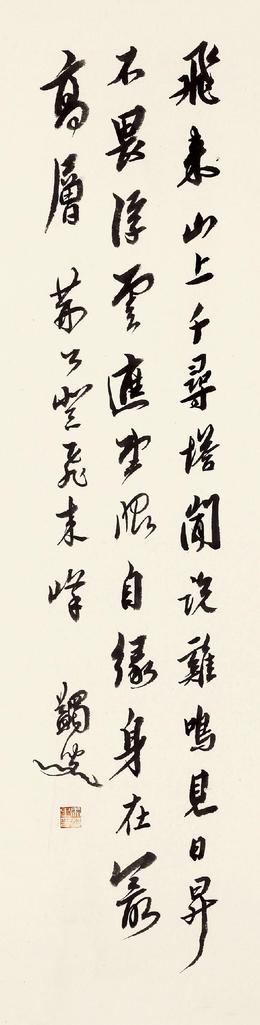 飛來山上千尋塔聞說雞鳴見日昇
不畏浮雲遮望眼自緣身在最
高層 荊公登飛來峰 蠲叟